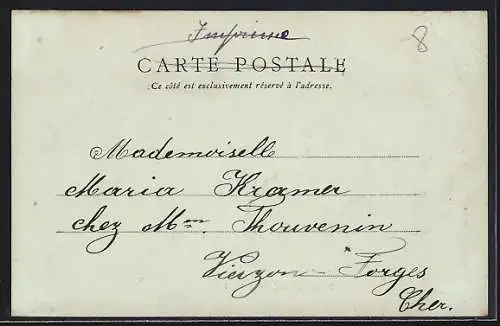 Imprimé
CARTE POSTALE
8
Ce côté est exclusivement réservé à l'adresse.
Mademoiselle
Maria Kramer
chez Mme Thouvenin
Vierzon-Forges
Cher.